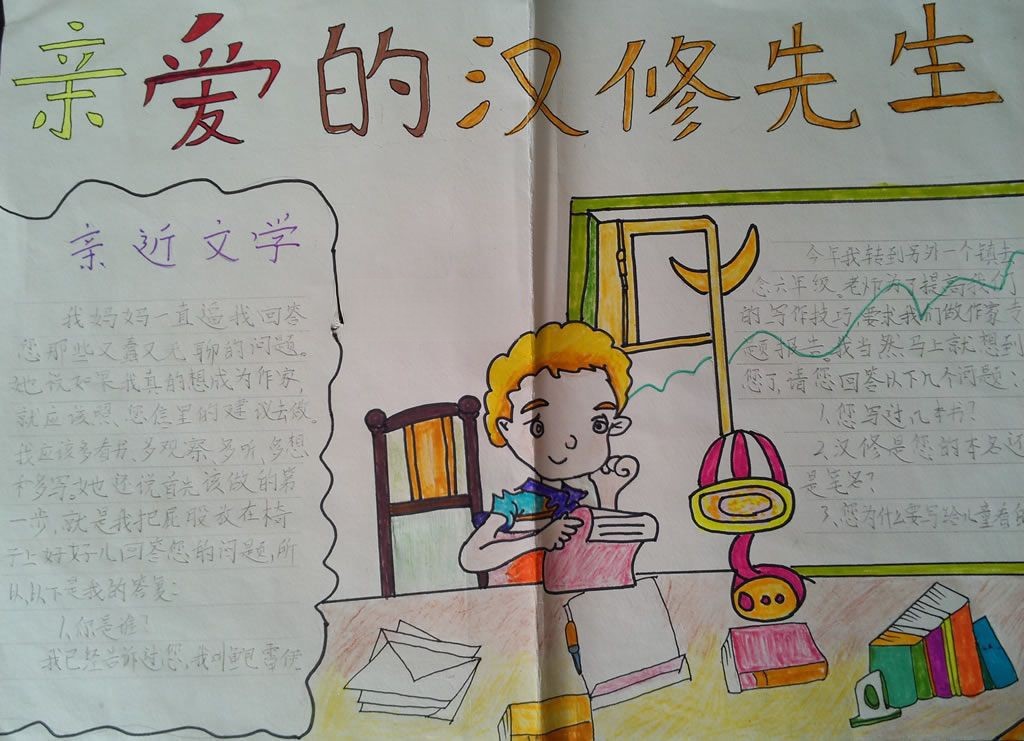 亲爱的汉修先生
亲近文学
我妈妈一直逼我回答
您那些又蠢又无聊的问题。
她说如果我真的想成为作家,
就应该照您信里的建议去做。
我应该多看书、多观察、多听、多想
和多写。她还说首先该做的第
一步,就是我把屁股放在椅
子上好好儿回答您的问题,所
以,以下是我的答复:
1、你是谁?
我已经告诉过您,我叫鲍雷伊
今年我转到另外一个镇去
念六年级。老师为了提高我们
的写作技巧,要求我们做作家专
题报告。我当然马上就想到
您了,请您回答以下几个问题:
1、您写过几本书?
2、汉修是您的本名还
是笔名?
3、您为什么要写给儿童看的